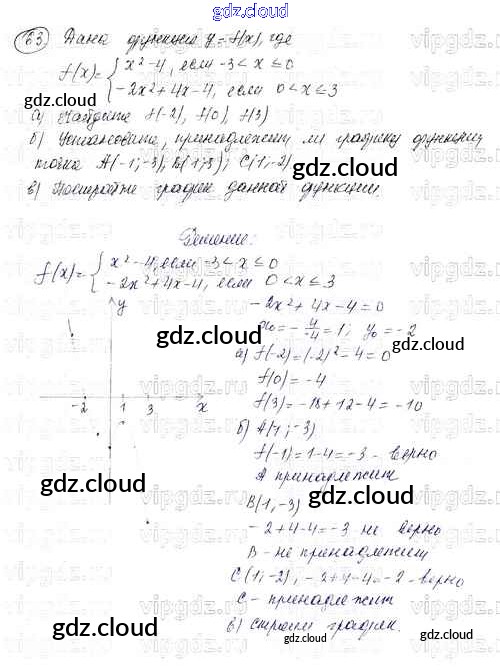 gdz.cloud
23 Дана функция y = f(x), где
f(x) = { x² - 4, если -3 < x ≤ 0
-2x² + 4x - 4, если 0 < x ≤ 3
а) Найдите f(-2), f(0), f(3)
б) Установите, принадлежит ли графику функции
точка A(-1; -3), B(1; 3); C(1, -2)
в) Постройте график данной функции.
Решение:
f(x) = { x² - 4, если -3 < x ≤ 0
-2x² + 4x - 4, если 0 < x ≤ 3
-2x² + 4x - 4 = 0
x₀ = - 4/-4 = 1; y₀ = -2
а) f(-2) = (-2)² - 4 = 0
f(0) = -4
f(3) = -18 + 12 - 4 = -10
б) A(1; -3)
f(-1) = 1 - 4 = -3 - верно
A принадлежит
B(1, -3)
-2 + 4 - 4 = -3 не верно
B - не принадлежит
C(1; -2), -2 + 4 - 4 = -2 - верно
C - принадлежит
в) Строим график.
y
-2 1 3 x
gdz.cloud
gdz.cloud
gdz.cloud
gdz.cloud
gdz.cloud
gdz.cloud
gdz.cloud
gdz.cloud
gdz.cloud
gdz.cloud